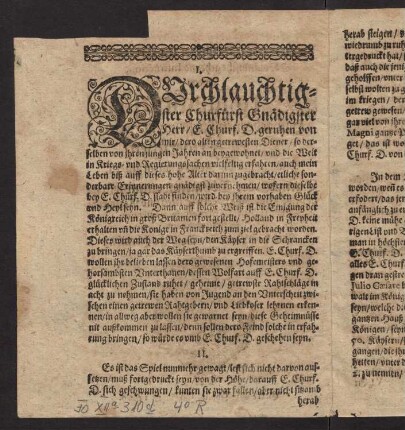 I.
DUrchlauchtig-
ster Churfürst Gnädigster
Herr / E. Churf. D. geruhen von
mir / dero alten getrewesten Diener / so der-
selben von ihren jungen Jahren an beygewohnet / und die Welt
in Kriegs- und Regierungssachen vielfeltig erfahren / auch mein
Leben biß auff dieses hohe Alter darinn zugebracht / etliche son-
derbare Erinnerungen gnädigst zuvernehmen / wofern dieselbe
bey E. Churf. D. statt finden wird es ihrem vorhaben Glück
und Heyl seyn. Dann auff solche Weiß ist die Einigung der
Königreich in groß Britannien fortgestellt / Holland in Freyheit
erhalten vnd die Könige in Franckreich zum ziel gebracht worden.
Dieses wird auch der Weg seyn / den Käyser in die Schrancken
zu bringen / ja gar das Kayserthumb zu ergreiffen. E. Churf. D.
wollen ihr bey den lesten dero gewesenen Hofmeisters und ge-
horsambsten Unterthanen / dessen Wolfart auff E. Churf. D.
glücklichen Zustand ruhet / geheime / getrewste Rahtschläge in
acht zu nehmen / sie haben von Jugend an den Unterscheit zwi-
schen einen getrewen Rahtgeber / und Liebkoser lehrnen erken-
nen / in allweg aber wollen sie gewarnet seyn / diese Geheimnüsse
nit auskommen zu lassen / denn sollen dero Feind solche in erfah-
rung bringen / so würde es umb E. Churf. D. geschehen seyn.
II.
Es ist das Spiel nunmehr gewagt / lest sich nicht darvon aus-
setzen / muß fortgedruckt seyn / von der Höhe / darauff E. Churf.
D. sich geschwungen / kunten sie zwar fallen / aber nicht sittsamb
herab
herab steigen /
wiedrumb zu ruh
daß auch die jeni
geholffen / unter
selbst wolten zu g
im kriegen / der
getrew gewesen /
gar viel von ihre
Magni ganze P
get / das ist wo
Churf. D. von
In dem
worden / weil es
erfordert / das jen
anfänglich zu er
D. keine mühe
man in höchster
E. Churf. D.
alles E. Churf
walt im König
seyn / welche da
Königen / seyn
50. Käysern /
gangen / die ih